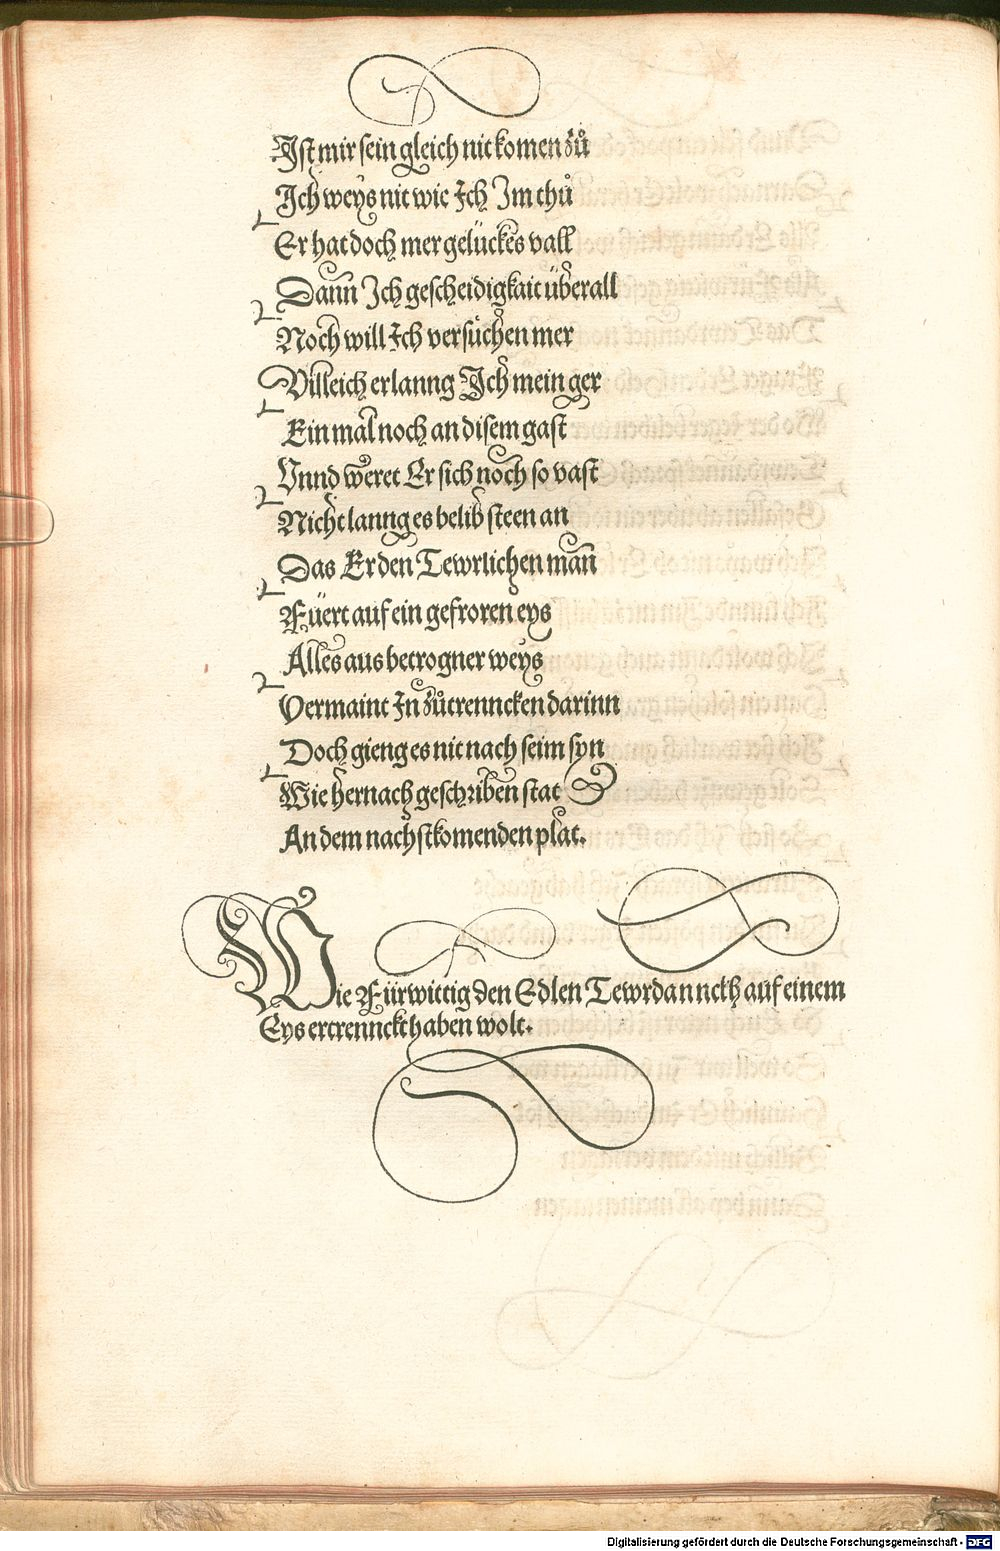 Ist mir sein gleich nit komen zů
Ich weys nit wie Ich Im thů
Er hat doch mer gelückes vall
Dann Ich gescheidigkait überall
Noch will Ich versüchen mer
Villeich erlanng Ich mein ger
Ein mal noch an disem gast
Vnnd weret Er sich noch so vast
Nicht lanng es belib steen an
Das Er den Tewrlichen man
Füert auf ein gefroren eys
Alles aus betrogner weys
Vermaint In zůtrenncken darinn
Doch gieng es nit nach seim syn
Wie hernach geschriben stat
An dem nachstkomenden plat.
Wie Fürwittig den Edlen Tewrdannckh auf einem
Eys ertrennckt haben wolt.
Digitalisierung gefördert durch die Deutsche Forschungsgemeinschaft - DFG